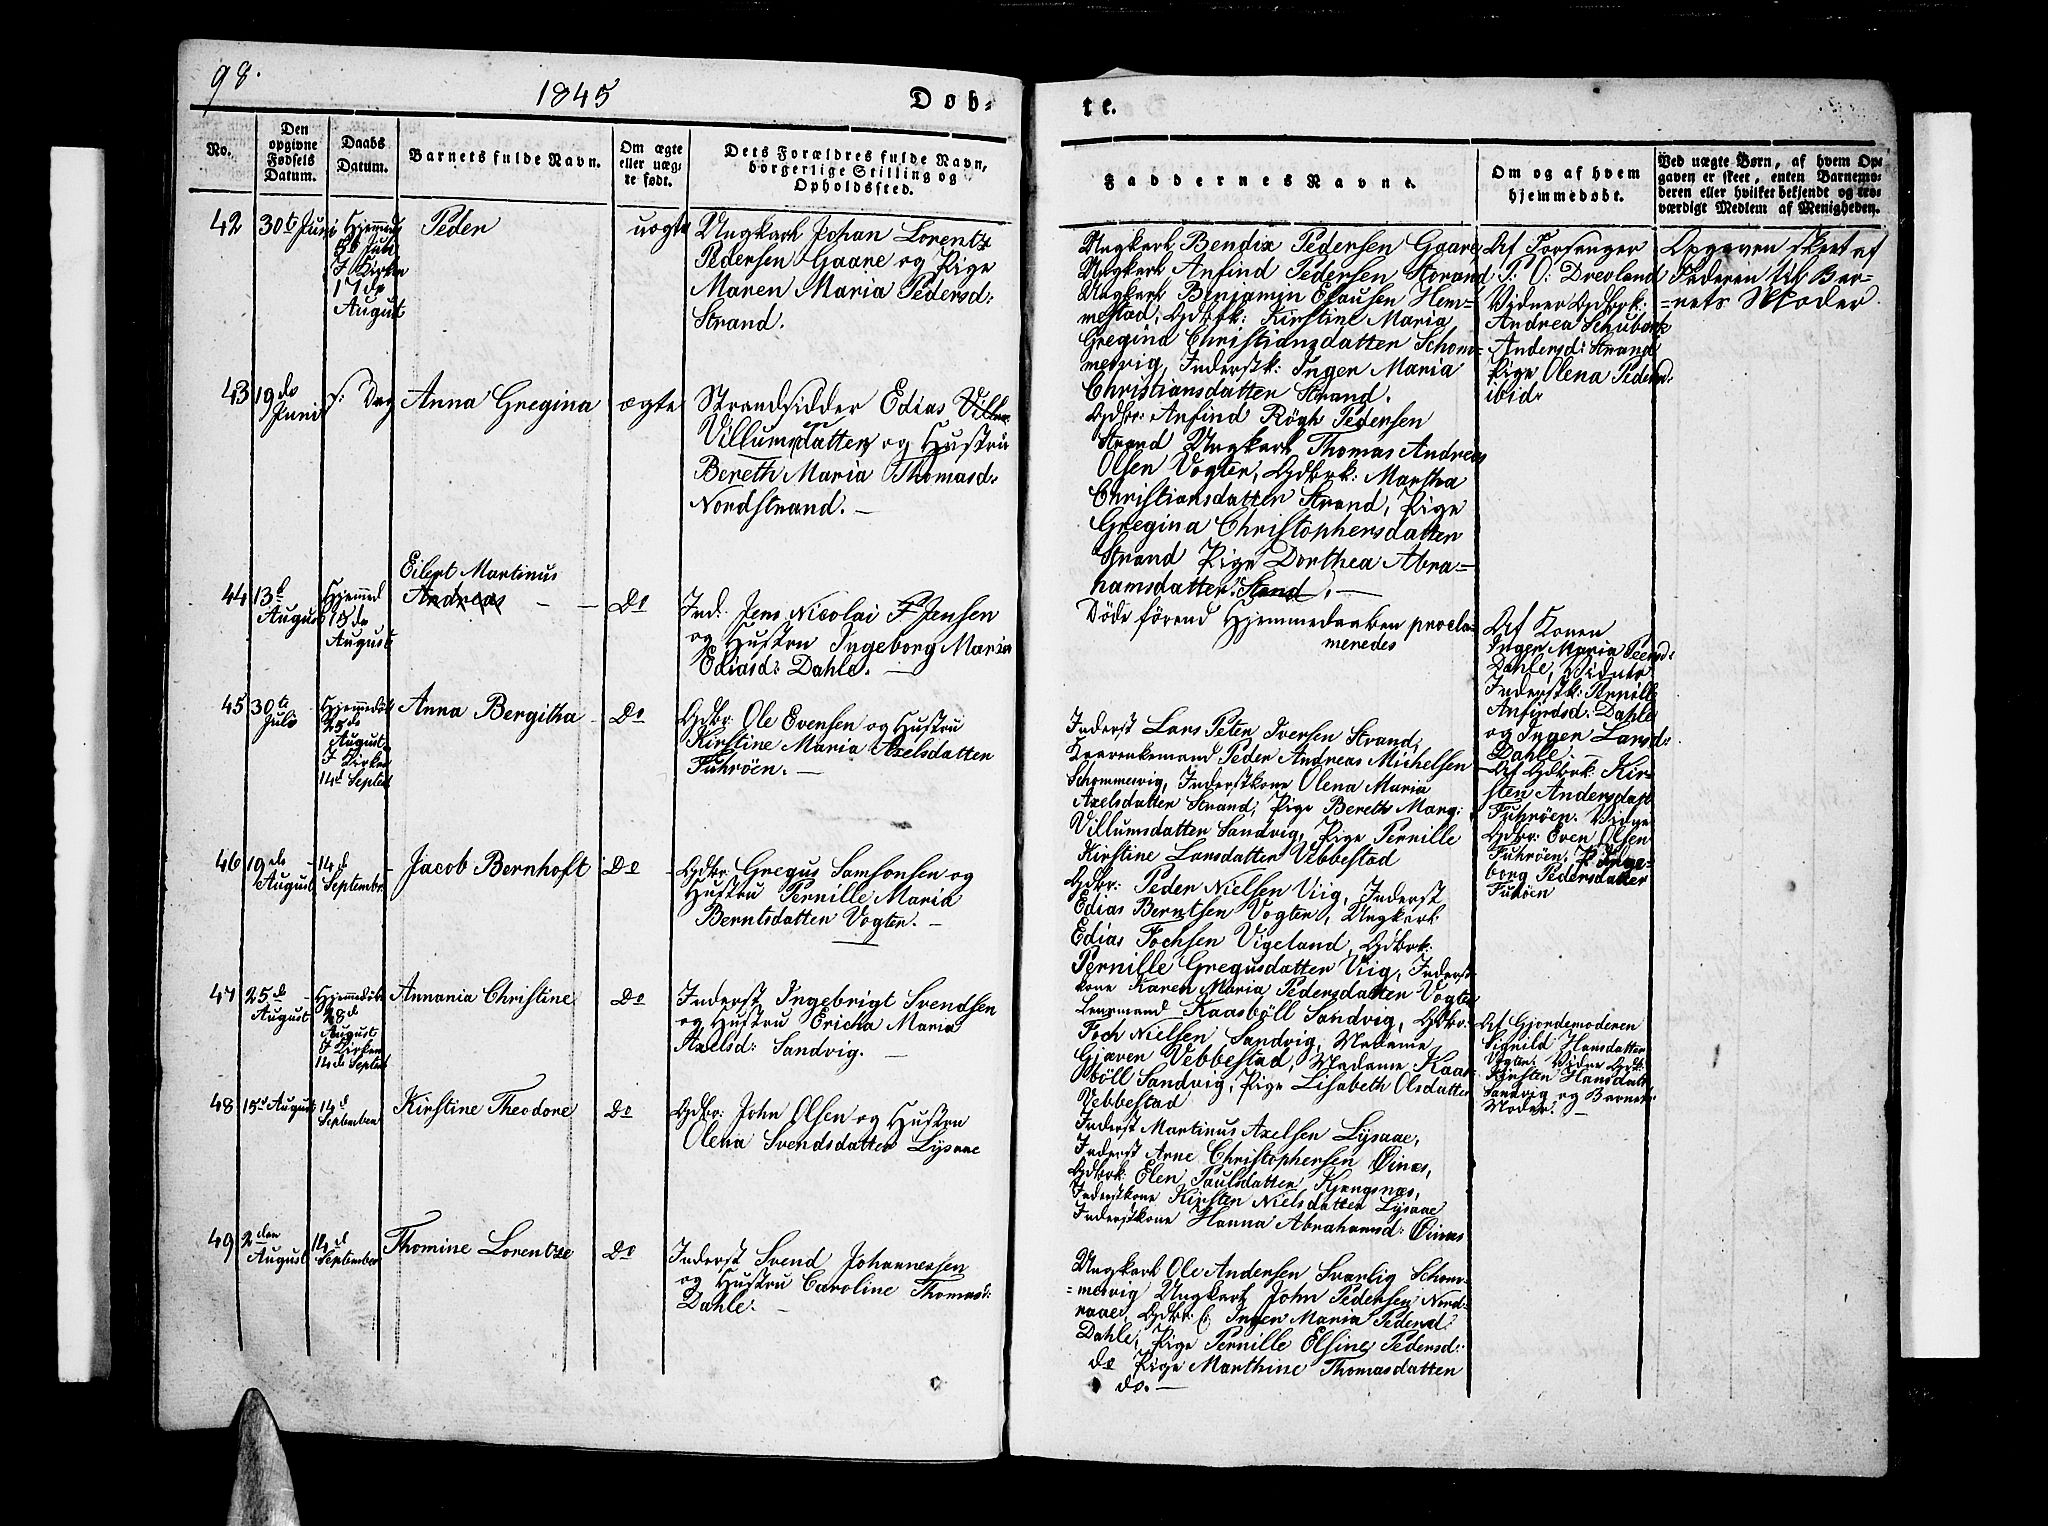 98.
1845
Dob-
te.
No.
Den
opgivne
Fødsels
Datum.
Daabs
Datum.
Barnets fulde Navn.
Om ægte
eller uæg-
te født.
Dets Forældres fulde Navn,
borgerlige Stilling og
Opholdssted.
Faddernes Navne.
Om og af hvem
hjemmedøbt.
Ved uægte Børn, af hvem Op-
gaven er skeet, enten Barnemo-
deren eller hvilket bekjendt og tro-
værdigt Medlem af Menigheden.
42
30te Juni
Hjemmed
Juli
I Kirken
17de
August
Peder
uægte
Ungkarl Johan Lorentz
Pedersen Gaare og Pige
Maren Maria Pedersd:
Strand.
Ungkarl Bendix Pedersen Gaare
Ungkarl Anfind Pedersen Strand
Ungkarl Benjamin Elausen Hem-
mestad, Gdbrk: Kirstine Maria
Gregina Christiansdatter Schom-
mervig, Inderstk: Inger Maria
Christiansdatter Strand.
Af Forsanger
P. O. Drevland
Vidner Gdbrk:
Andrea Schubark
Andersd: Strand
Pige Olena Pedersd:
ibid.
Opgaven skeet af
Faderen til Bar-
=nets Moder.
43
19de
Juni
s: Dag
Anna Gregina
ægte
Strandsidder Edias
Villumsdatter og Hustru
Bereth Maria Thomasd:
Nordstrand. —
Gdbr: Anfind Rögh Pedersen
Strand Ungkarl Thomas Andreas
Olsen Vogter, Gdbrk: Martha
Christiansdatter Strand, Pige
Gregina Christophersdatter
Strand Pige Dorthea Abra=
hamsdatter Strand. —
44
13de
August
Hjemmed
15de
August
Eilert Martinus
Andreas — —
Do
Ind. Jens Nicolai F Jensen
og Hustru Ingeborg Maria
Ediasd: Dahle. —
Døde förend Hjemmedaaben procla-
meredes
Af Konen
Inger Maria Peersd:
Dahle, Vidner
Inderstk: Pernille
Anfindsd: Dahle
og Inger Larsd:
Dahle. —
45
30te
July
Hjemmedøbt
August
I Kirken
14d Septbr
Anna Bergitha -
Do
Gdbr. Ole Evensen og Hustru
Kirstine Maria Axelsdatter
Fuhröen. —
Inderst Lars Peter Iversen Strand,
Qvarterkemand Peder Andreas Michelsen
Schommervig, Inderstkone Olena Maria
Axelsdatter Strand, Pige Bereth Marg:
Villumsdatter Sandvig, Pige Pernille
Kirstine Larsdatter Vebbestad
Af Gdbrk: Kir-
sten Andersdatt
Fuhröen. Vidne
Gdbr: Even Olsen
Fuhröen, P Inge-
borg Pedersdatter
Fuhöen
46
19de
August
14d
Septembr
Jacob Bernhoft
Do
Gdbr Gregus Samsonsen og
Hustru Pernille Maria
Berntsdatter Vogter. —
Gdbr: Peder Nielsen Viig, Inderst
Edias Berntsen Vogter, Ungkarl
Edias Fochsen Vigeland, Gdbrk:
Pernille Gregusdatter Viig, Inderst-
kone Karen Maria Pedersdatter Vogter
47
25d
August
Hjemmedøbt
28d
August
I Kirken
14de Septbr
Annania Christine
Do
Inderst Ingebrigt Svendsen
og Hustru Ericka Maria
Axelsd: Sandvig. —
Lensmand Kaasböll Sandvig, Gdbr:
Foch Nielsen Sandvig, Madame
Gjæver Vebbestad, Madame Kaas-
böll Sandvig, Pige Lisabeth Olsdatter
Vebbestad
Af Gjordemoderen
Signild Hansdatter
Vogter. Vidne Gdbk:
Kirsten Hansdatt
Sandvig og Barnets
Moder. —
48
15d August
14d
September
Kirstine Theodore
Do
Gdbr: John Olsen og Hustru
Olena Svendsdatter Lysaae
Inderst Martinus Axelsen Lysaae,
Inderst Arne Christophersen Öinæs,
Gdbrk. Elen Paulsdatter Kjængsnæs,
Inderstkone Kirsten Nielsdatter Lysaae
Inderstkone Hanna Abrahamsd: Öinæs
49
2den
August
14d
September
Thomine Lorentze
Do
Inderst Svend Johannersen
og Hustru Caroline Thomasd:
Dahle. —
Ungkarl Ole Andersen Svartlig Schom-
=mervig Ungkarl John Pedersen Nord-
raae, Gdbr: E. Inger Maria Pedersd
Dahle, Pige Pernille Elsine Pedersd:
do Pige Marthine Thomasdatter
do. —